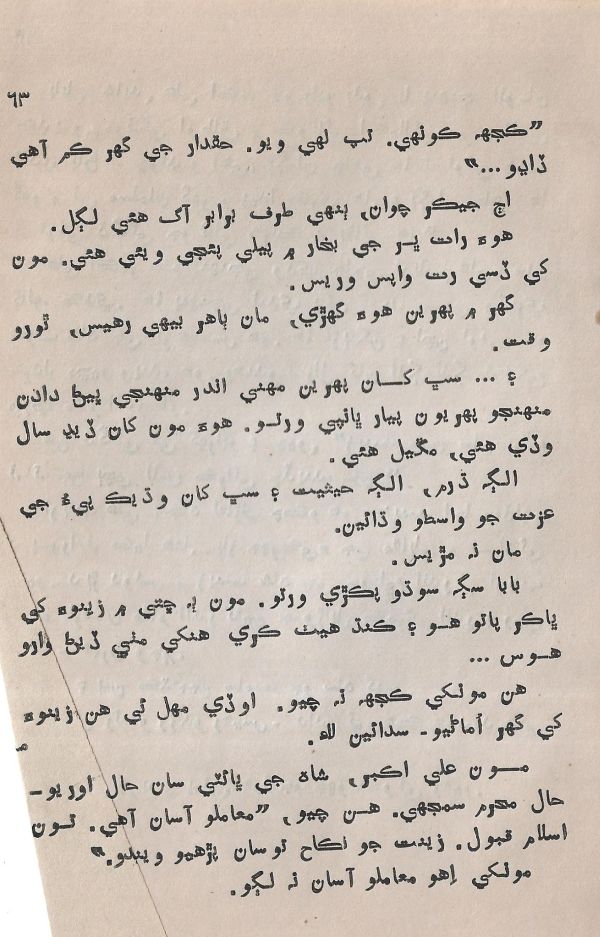 ٦٣
”ڪجهہ ڪونهي. تپ لهي ويو. حقدار جي گهر ڪم آهي
ڏاڍو...“
اڄ جيڪر چوان، ٻنهي طرف برابر آگ هئي لڳل.
هوءَ رات ڀر جي بخار ۾ پيلي پئجي ويئي هئي. مون
کي ڏسي رت واپس وريس.
گهر ۾ پهرين هوءَ گهڙي، مان ٻاهر بيهي رهيس، ٿورو
وقت.
۽ ... سڀ کان پهرين مهني اندر منهنجي ڀيڻ دادن
منهنجو پهريون پيار ڀانپي ورتو. هوءَ مون کان ڏيڍ سال
وڏي هئي، مڱيل هئي.
الڳ ڌرم، الڳ حيثيت ۽ سڀ کان وڌيڪ پيءُ جي
عزت جو واسطو وڌائين.
مان نہ مڙيس.
بابا سڳہ سوڌو پڪڙي ورتو. مون ٻہ ڇتي ۾ زينوءَ کي
ڀاڪر پاتو هو ۽ ڪنڌ هيٺ ڪري هنکي مٺي ڏيڻ وارو
هوس ...
هن مونکي ڪجهہ نہ چيو. اوڏي مهل ئي هن زينوءَ
کي گهر اُماڻيو- سدائين لاءِ.
مون علي اڪبر، شاهہ جي ڀائٽي سان حال اوريو-
حال محرم سمجهي. هن چيو، ”معاملو آسان آهي. تون
اسلام قبول. زينت جو نڪاح توسان پڙهبو ويندو.“
مونکي اِهو معاملو آسان نہ لڳو.